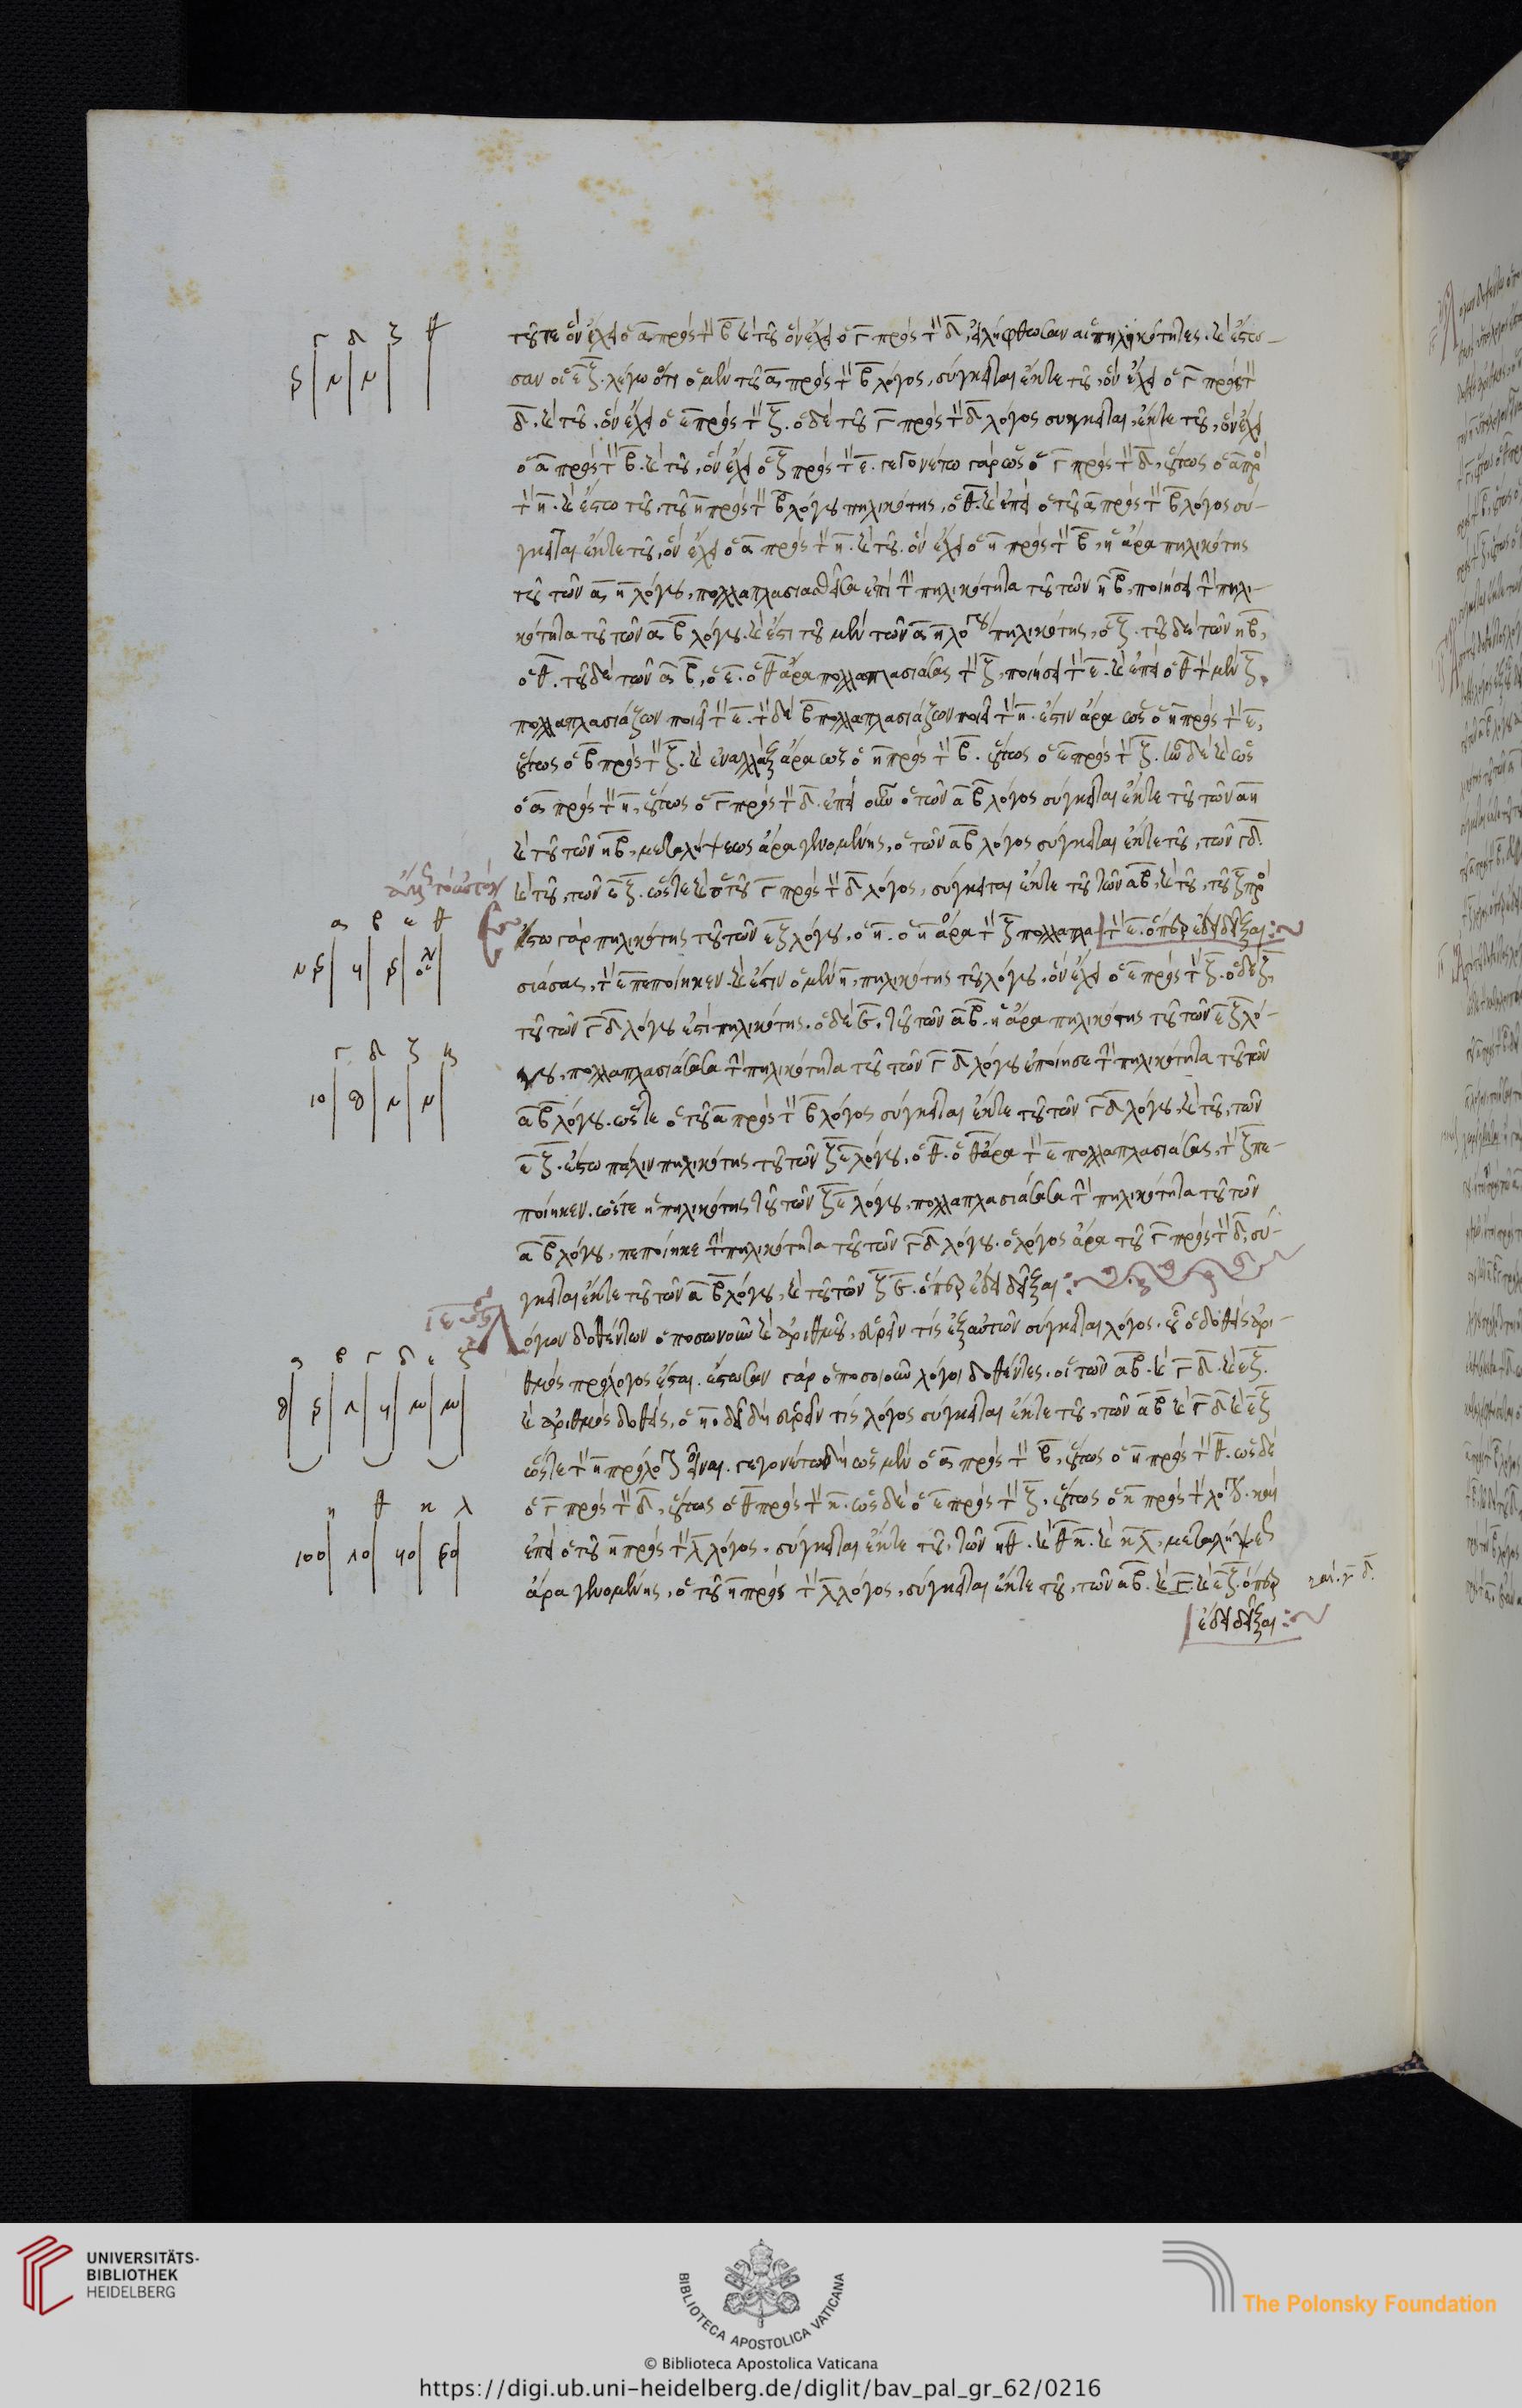 γ δ ζ θ
τοῦ τε ὃν ἔχει ὁ α πρὸς τὸν β καὶ τοῦ ὃν ἔχει ὁ γ πρὸς τὸν δ, εἰλήφθωσαν αἱ πηλικότητες. καὶ ἔστω-
σαν οἱ ε ζ. λέγω ὅτι ὁ μὲν τοῦ α πρὸς τὸν β λόγος, σύγκειται ἔκ τε τοῦ, ὃν ἔχει ὁ γ πρὸς τὸν
δ. καὶ τοῦ, ὃν ἔχει ὁ ε πρὸς τὸν ζ. ὁ δὲ τοῦ γ πρὸς τὸν δ λόγος συγκειται, ἔκ τε τοῦ, ὃν ἔχει
ὁ α πρὸς τὸν β. καὶ τοῦ, ὃν ἔχει ὁ ζ πρὸς τὸν ε. γεγονέτω γὰρ ὡς ὁ γ πρὸς τὸν δ, οὕτως ὁ α πρὸς
τὸν η. καὶ ἔστω τοῦ, τοῦ η πρὸς τὸν β λόγου πηλικότης, ὁ θ. καὶ ἐπεὶ ὁ τοῦ α πρὸς τὸν β λόγος σύ-
γκειται ἔκ τε τοῦ, ὃν ἔχει ὁ α πρὸς τὸν η. καὶ τοῦ. ὃν ἔχει ὁ η πρὸς τὸν β, ἡ ἄρα πηλικότης
τοῦ τῶν α, η λόγου, πολλαπλασιασθεῖσα ἐπὶ τὴν πηλικότητα τοῦ τῶν η β, ποιήσει τὴν πηλι-
κότητα τοῦ τῶν α β λόγου. καὶ ἔστι τοῦ μὲν τῶν α η λόγου πηλικότης, ὁ ζ. τοῦ δὲ τῶν η β,
ὁ θ. τοῦ δὲ τῶν α β, ὁ ε. ὁ θ ἄρα πολλαπλασιάσας τὸν ζ, ποιήσει τὸν ε. καὶ ἐπεὶ ὁ θ τὸν μὲν ζ
πολλαπλασιάζων ποιεῖ τὸν ε. τὸν δὲ β πολλαπλασιάζων ποιεῖ τὸν η. ἔστιν ἄρα ὡς ὁ η πρὸς τὸν ε,
οὕτως ὁ β πρὸς τὸν ζ. καὶ ἐναλλὰξ ἄρα ὡς ὁ η πρὸς τὸν β. οὕτως ὁ ε πρὸς τὸν ζ. ἦν δὲ καὶ ὡς
ὁ α πρὸς τὸν η, οὕτως ὁ γ πρὸς τὸν δ. ἐπεὶ οὖν ὁ τῶν α β λόγος σύγκειται ἔκ τε τοῦ τῶν α η
καὶ τοῦ τῶν η β, μεταλήψεως ἄρα γινομένης, ὁ τῶν α β λόγος σύγκειται ἔκ τε τοῦ, τῶν γ δ
καὶ τοῦ, τῶν ε ζ. ὥστε καὶ ὁ τοῦ γ πρὸς τὸν δ λόγος, σύγκειται ἔκ τε τοῦ τῶν α β, καὶ τοῦ, τοῦ ζ πρὸς
τὸν ε. ὅπερ ἔδει δεῖξαι :~
α β ε θ
ἔστω γὰρ πηλικότης τοῦ τῶν ε ζ λόγου, ὁ η. ὁ η ἄρα τὸν ζ πολλαπλα-
σιάσας, τὸν ε πεποίηκεν. καὶ ἔστιν ὁ μὲν η, πηλικότης τοῦ λόγου, ὃν ἔχει ὁ ε πρὸς τὸν ζ. ὁ δὲ ζ,
τοῦ τῶν γ δ λόγου ἐστὶ πηλικότης. ὁ δὲ ε, τοῦ τῶν α β. ἡ ἄρα πηλικότης τοῦ τῶν ε ζ λό-
γου, πολλαπλασιάσασα τὴν πηλικότητα τοῦ τῶν γ δ λόγου ἐποίησε τὴν πηλικότητα τοῦ τῶν
α β λόγου. ὥστε ὁ τοῦ α πρὸς τὸν β λόγος σύγκειται ἔκ τε τοῦ τῶν γ δ λόγου, καὶ τοῦ, τῶν
ε ζ. ἔστω πάλιν πηλικότης τοῦ τῶν ζ ε λόγου, ὁ θ. ὁ θ ἄρα τὸν ε πολλαπλασιάσας, τὸν ζ πε-
ποίηκεν. ὥστε ἡ πηλικότης τοῦ τῶν ζ ε λόγου, πολλαπλασιάσασα τὴν πηλικότητα τοῦ τῶν
α β λόγου, πεποίηκε τὴν πηλικότητα τοῦ τῶν γ δ λόγου. ὁ λόγος ἄρα τοῦ γ πρὸς τὸν δ, σύ-
γκειται ἔκ τε τοῦ τῶν α β λόγου, καὶ τοῦ τῶν ζ ε. ὅπερ ἔδει δεῖξαι :~
α β γ δ ε ζ
Λόγων δοθέντων ὁποσωνοῦν καὶ ἀριθμοῦ, εὑρεῖν τίς ἐξ αὐτῶν σύγκειται λόγος. οὗ ὁ δοθεὶς ἀρι-
θμὸς πρόλογος ἔσται. ἔστωσαν γὰρ ὁποσοιοῦν λόγοι δοθέντες, οἱ τῶν α β. καὶ γ δ. καὶ ε ζ.
καὶ ἀριθμὸς δοθεὶς, ὁ η. δεῖ δὴ εὑρεῖν τίς λόγος σύγκειται ἔκ τε τοῦ, τῶν α β καὶ γ δ καὶ ε ζ
ὥστε τὸν η πρόλογον εἶναι. γεγονέτω δὴ ὡς μὲν ὁ α πρὸς τὸν β, οὕτως ὁ η πρὸς τὸν θ. ὡς δὲ
η θ κ λ
ὁ γ πρὸς τὸν δ, οὕτως ὁ θ πρὸς τὸν κ. ὡς δὲ ὁ ε πρὸς τὸν ζ, οὕτως ὁ κ πρὸς τὸν λ. καὶ
ἐπεὶ ὁ τοῦ η πρὸς τὸν λ λόγος, σύγκειται ἔκ τε τοῦ, τῶν η θ. καὶ θ κ. καὶ κ λ, μεταλήψεως
ἄρα γινομένης, ὁ τοῦ η πρὸς τὸν λ λόγος, σύγκειται ἔκ τε τοῦ, τῶν α β. καὶ γ. καὶ ε ζ. ὅπερ
ἔδει δεῖξαι :~
UNIVERSITÄTS-
BIBLIOTHEK
HEIDELBERG
BIBLIOTECA APOSTOLICA VATICANA
The Polonsky Foundation
© Biblioteca Apostolica Vaticana
https://digi.ub.uni-heidelberg.de/diglit/bav_pal_gr_62/0216